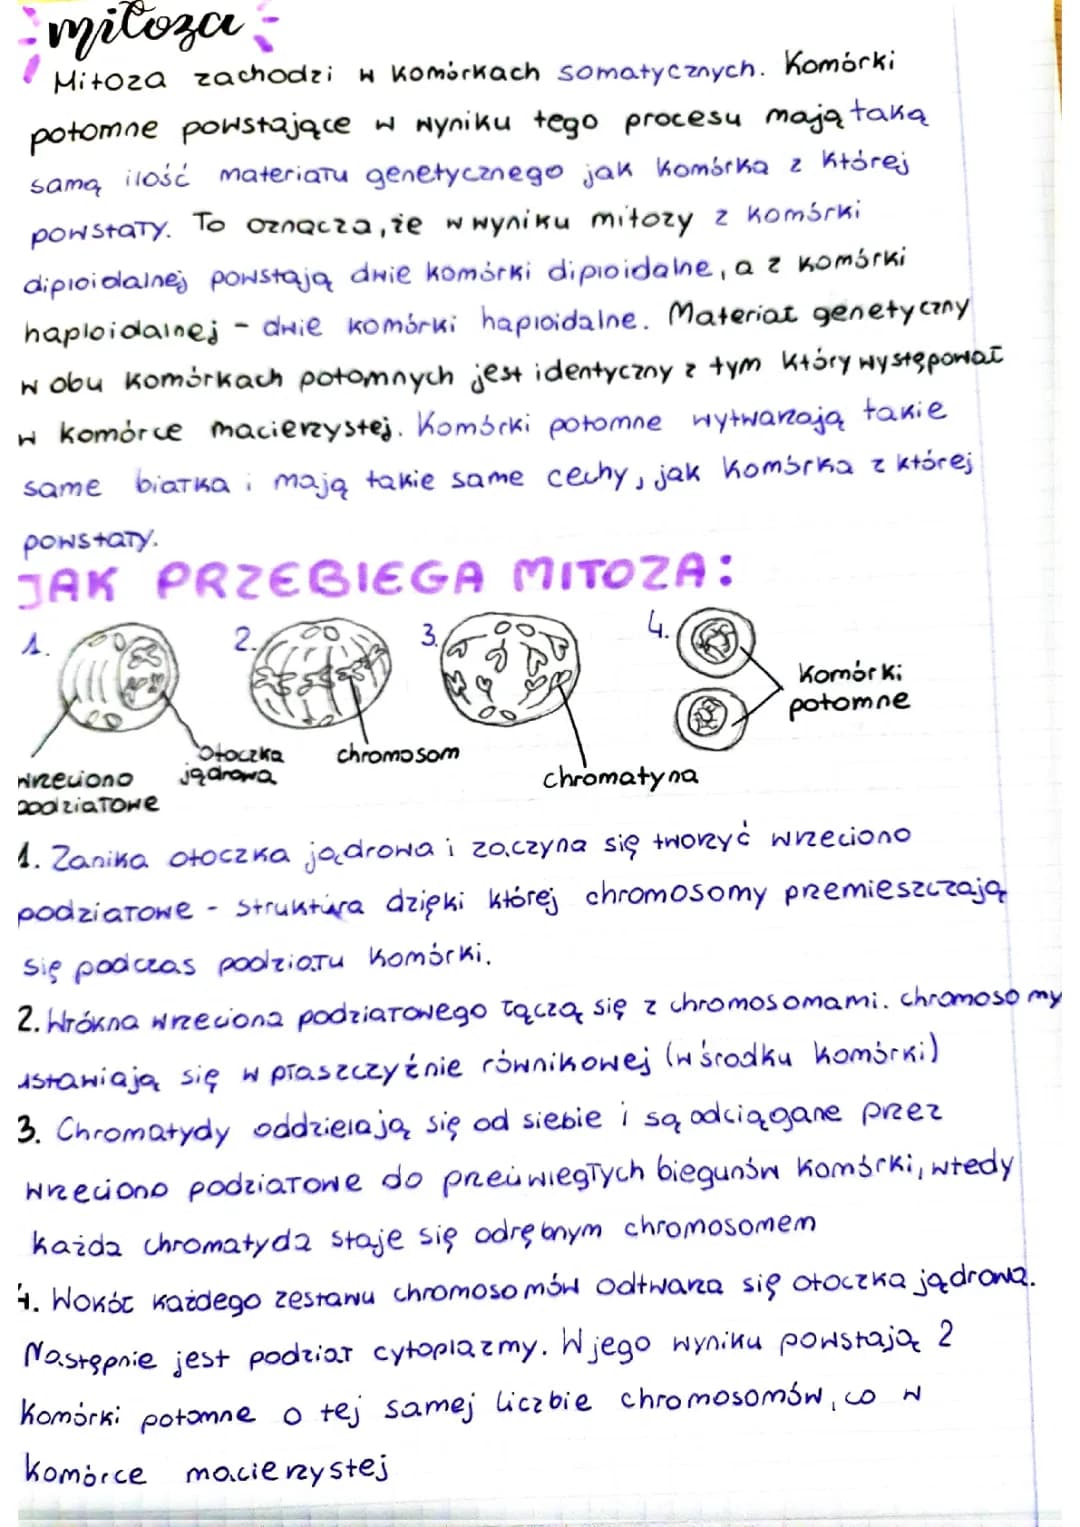 mitoza
Mitoza zachodzi w komórkach somatycznych. Komórki
potomne powstające w wyniku tego procesu mają taką
samą ilość materiału genetycznego jak komórka z której
powstały. To oznacza, że w wyniku mitozy z komórki
diploidalnej powstają dwie komórki diploidalne, a z komórki
haploidalnej - dwie komórki haploidalne. Materiał genetyczny
w obu komórkach potomnych jest identyczny z tym który występował
w komórce macierzystej. Komórki potomne wytwarzają takie
same białka i mają takie same cechy, jak komórka z której
powstały.
JAK PRZEBIEGA MITOZA:
1. 2. 3. 4.
Komórki
potomne
otoczka
jądrowa
chromosom
wrzeciono
podziałowe
chromatyna
1. Zanika otoczka jądrowa i zaczyna się tworzyć wrzeciono
podziałowe - struktura dzięki której chromosomy przemieszczają
się podczas podziału komórki.
2. Włókna wrzeciona podziałowego łączą się z chromosomami. chromosomy
ustawiają się w płaszczyźnie równikowej (w środku komórki)
3. Chromatydy oddzielają się od siebie i są odciągane przez
wrzeciono podziałowe do przeciwległych biegunów komórki, wtedy
każda chromatyda staje się odrębnym chromosomem
4. Wokół każdego zestawu chromosomów odtwarza się otoczka jądrowa.
Następnie jest podział cytoplazmy. W jego wyniku powstają 2
komórki potomne o tej samej liczbie chromosomów, co w
komórce macierzystej